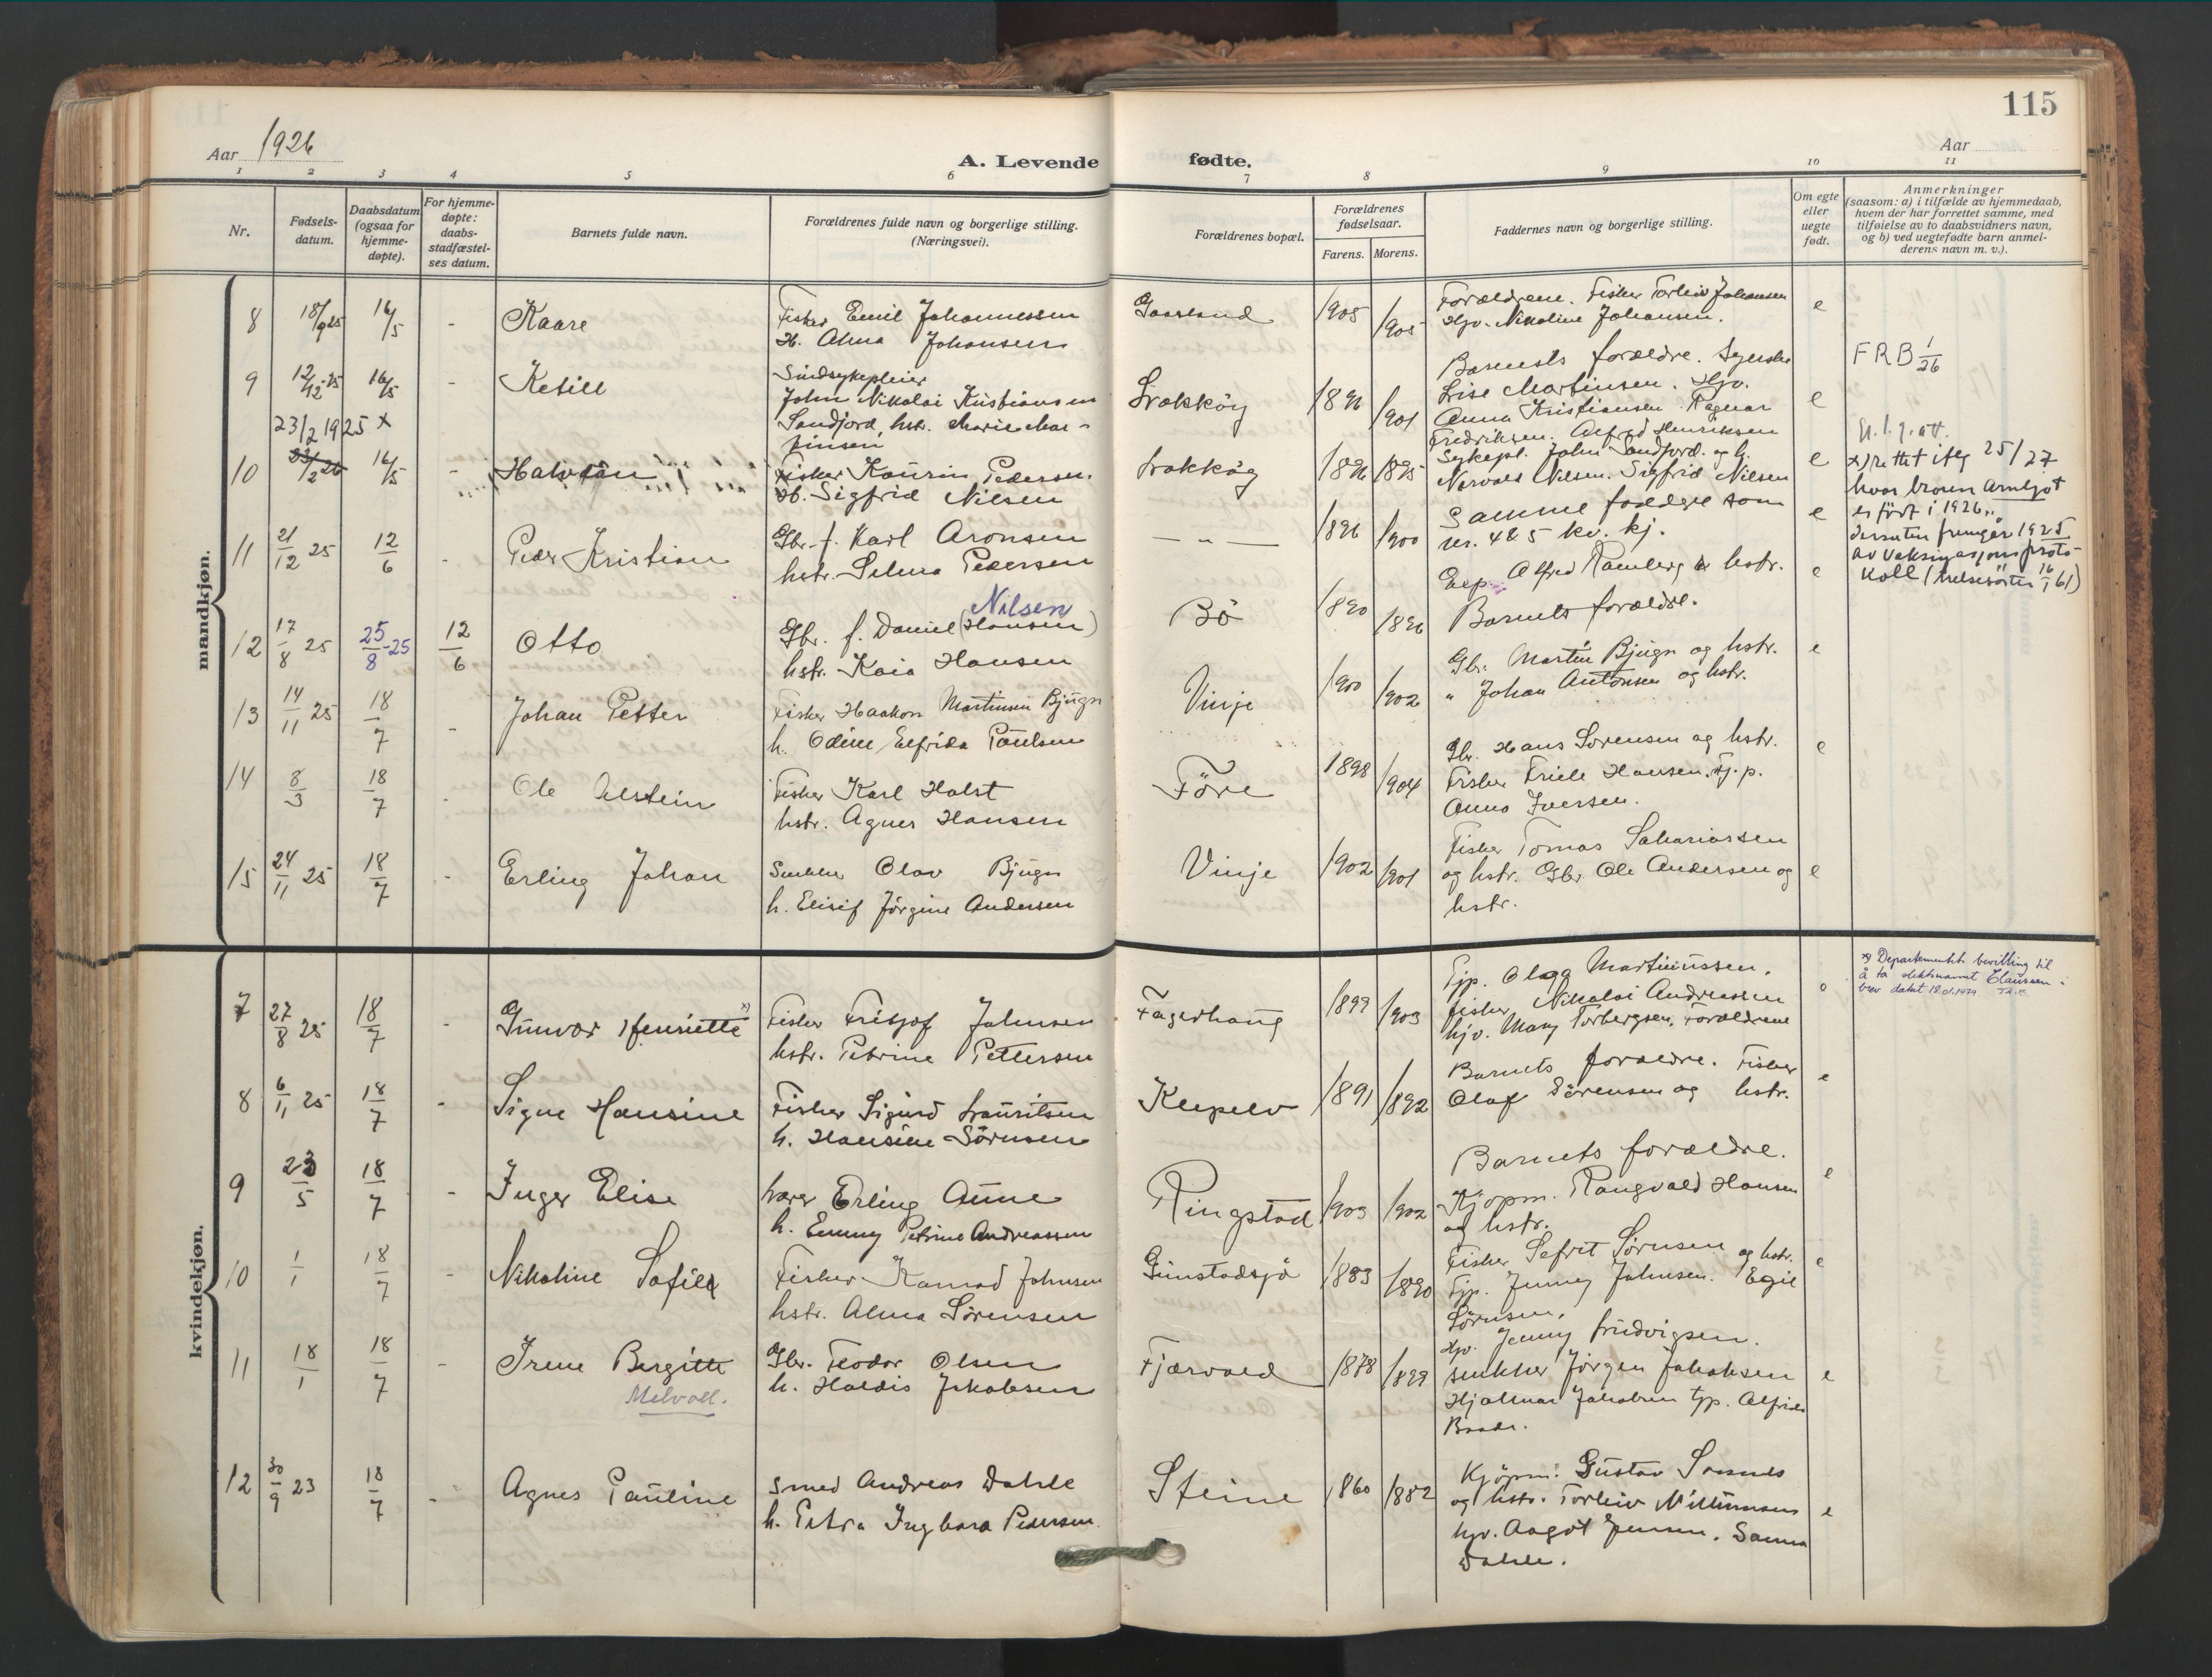 115
Aar 1926
A. Levende fødte.
Aar
1 2 3 4 5 6 7 8 9 10 11
Nr.
Fødselsdatum.
Daabsdatum (ogsaa for hjemmedøpte).
For hjemmedøpte: daabsstadfæstelses datum.
Barnets fulde navn.
Forældrenes fulde navn og borgerlige stilling. (Næringsvei).
Forældrenes bopæl.
Forældrenes fødselsaar.
Farens. Morens.
Faddernes navn og borgerlige stilling.
Om egte eller uegte født.
Anmerkninger
(saasom: a) i tilfælde av hjemmedaab,
hvem der har forrettet samme, med
tilføielse av to daabsvidners navn,
og b) ved uegtefødte barn anmelderens navn m. v.).
mandkjøn.
8 18/9 25 16/5 - Kaare
Fisker Emil Johannessen
H. Alma Johansen
Gaarland 1905 1905
Forældrene. Fisker Torleiv Johansen
Hjv. Nikoline Johansen.
e
9 12/12 25 16/5 - Ketill
Sindsykepleier
John Nikolai Kristiansen
Sandjord, hstr. Marie Martinsen
1896 1901
Barnets forældre.
Lise Martinsen. Hjv.
Anna Kristiansen Ragnar
Fredriksen. Alfred Henriksen
e
FRB 1/26
23/2 1925 x
10 23/2 26 16/5 - Halvdan
Fisker Kaurin Pedersen
H. Sigfrid Nilsen
1896 1895
Sykepl. John Sandjord og h.
Norvald Nilsen. Sigfrid Nilsen
e
x) rettet iflg 25/27
hvor broren Arnljot
er født i 1926,
dessuten fremgår 1925
av vaksinasjonsproto-
koll (helsesøster 16/1 61)
11 21/12 25 12/6 - Peder Kristian
Gbr. f. Karl Aronsen
hstr. Selma Pedersen
— " — 1896 1900
Samme faddere som
nr. 4 & 5 kv. kj.
Eksp. Alfred Ramberg & hstr.
e
12 17/8 25 25/8-25 12/6 Otto
Nilsen
Gbr. f. Daniel (Hansen)
hstr. Kaia Hansen
Bö 1890 1896
Barnets forældre.
e
13 14/11 25 18/7 - Johan Petter
Fisker Haakon Martinsen Bjugn
h. Odine Elfrida Paulsen
Vinje 1900 1902
Gbr. Martin Bjugn og hstr.
" Johan Antonsen og hstr.
e
14 8/3 18/7 - Ole Alstein
Fisker Karl Holst
hstr. Agnes Hansen
Före 1898 1904
Gbr. Hans Sørensen og hstr.
Fisker Triele Hansen. Tj. p.
Anna Iversen.
e
15 24/11 25 18/7 - Erling Johan
Snekker Olav Bjugn
h. Elisif Jörgine Andersen
Vinje 1902 1901
Fisker Tomas Sakariassen
og hstr. Gbr. Ole Andersen og
hstr.
e
kvindekjøn.
7 27/8 25 18/7 Gunvor Henriette x)
Fisker Fritjof Johnsen
hstr. Petrine Pettersen
Fagerhaug 1899 1903
Tjp. Olaga Martinussen.
fisker Nikolai Andreassen
hjv. Mary Torbergsen. Forældrene
x) Departementets bevilling til
å ta slektsnavnet Claussen i
brev datert 18.01.1979
8 6/11 25 18/7 - Signe Hansine
Fisker Sigurd Lauritsen
h. Hansine Sörensen
Klepelv 1891 1892
Barnets forældre. Fisker
Olaf Sörensen og hstr.
e
9 23/5 18/7 - Inger Elise
Lærer Erling Aune
h. Emmy Petrine Andreassen
Ringstad 1903 1902
Barnets forældre.
Kjöpm. Rangvald Hansen
og hstr.
e
10 1/1 18/7 - Nikoline Sofie
Fisker Konrad Johnsen
hstr. Alma Sörensen
Gunstadsjö 1883 1890
Fisker Sefrit Sörnsen og hstr.
Tjp. Jenny Johnsen. Egil
Sörnsen.
e
11 18/1 18/7 - Irene Bergitte
Melvoll.
Gbr. Teodor Olsen
h. Haldis Jakobsen
Fjærvoll 1878 1899
Hjv. Jenny Ludvigsen.
snekker Jörgen Jakobsen
Hjalmar Jakobsen tjp. Alfrida
e
12 30/9 23 18/7 - Agnes Pauline
Smed Andreas Dahle
h. Petra Ingbora Pedersen
Steine 1860 1882
Kjöpm. Gustav
og hstr. Torleiv
hjv. Aagot Jensen. Sanna
Dahle.
e